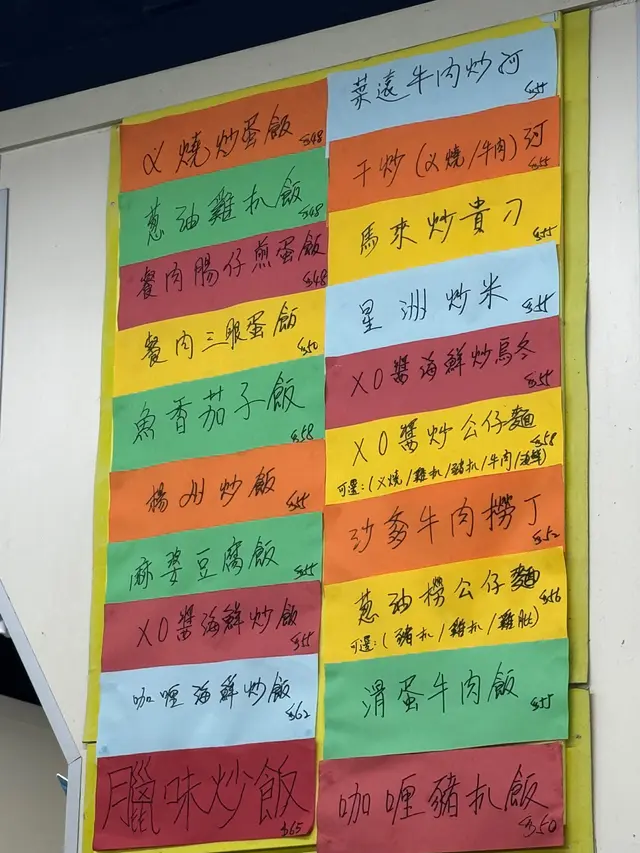 义燒炒蛋飯 $48
蔥油雞扒飯 $48
餐肉腸仔煎蛋飯 $48
餐肉三眼蛋飯 $50
魚香茄子飯 $58
楊州炒飯 $55
麻婆豆腐飯 $55
XO醬海鮮炒飯 $55
咖喱海鮮炒飯 $62
臘味炒飯 $65
菜遠牛肉炒河 $55
干炒(义燒/牛肉)河 $55
馬來炒貴刁 $55
星洲炒米 $55
XO醬海鮮炒烏冬 $55
XO醬炒公仔麵 $58
可選:(义燒/雞扒/豬扒/牛肉/海鮮)
沙爹牛肉撈丁 $52
蔥油撈公仔麵 $46
可選:(豬扒/雞扒/雞肶)
滑蛋牛肉飯 $55
咖喱豬扒飯 $50